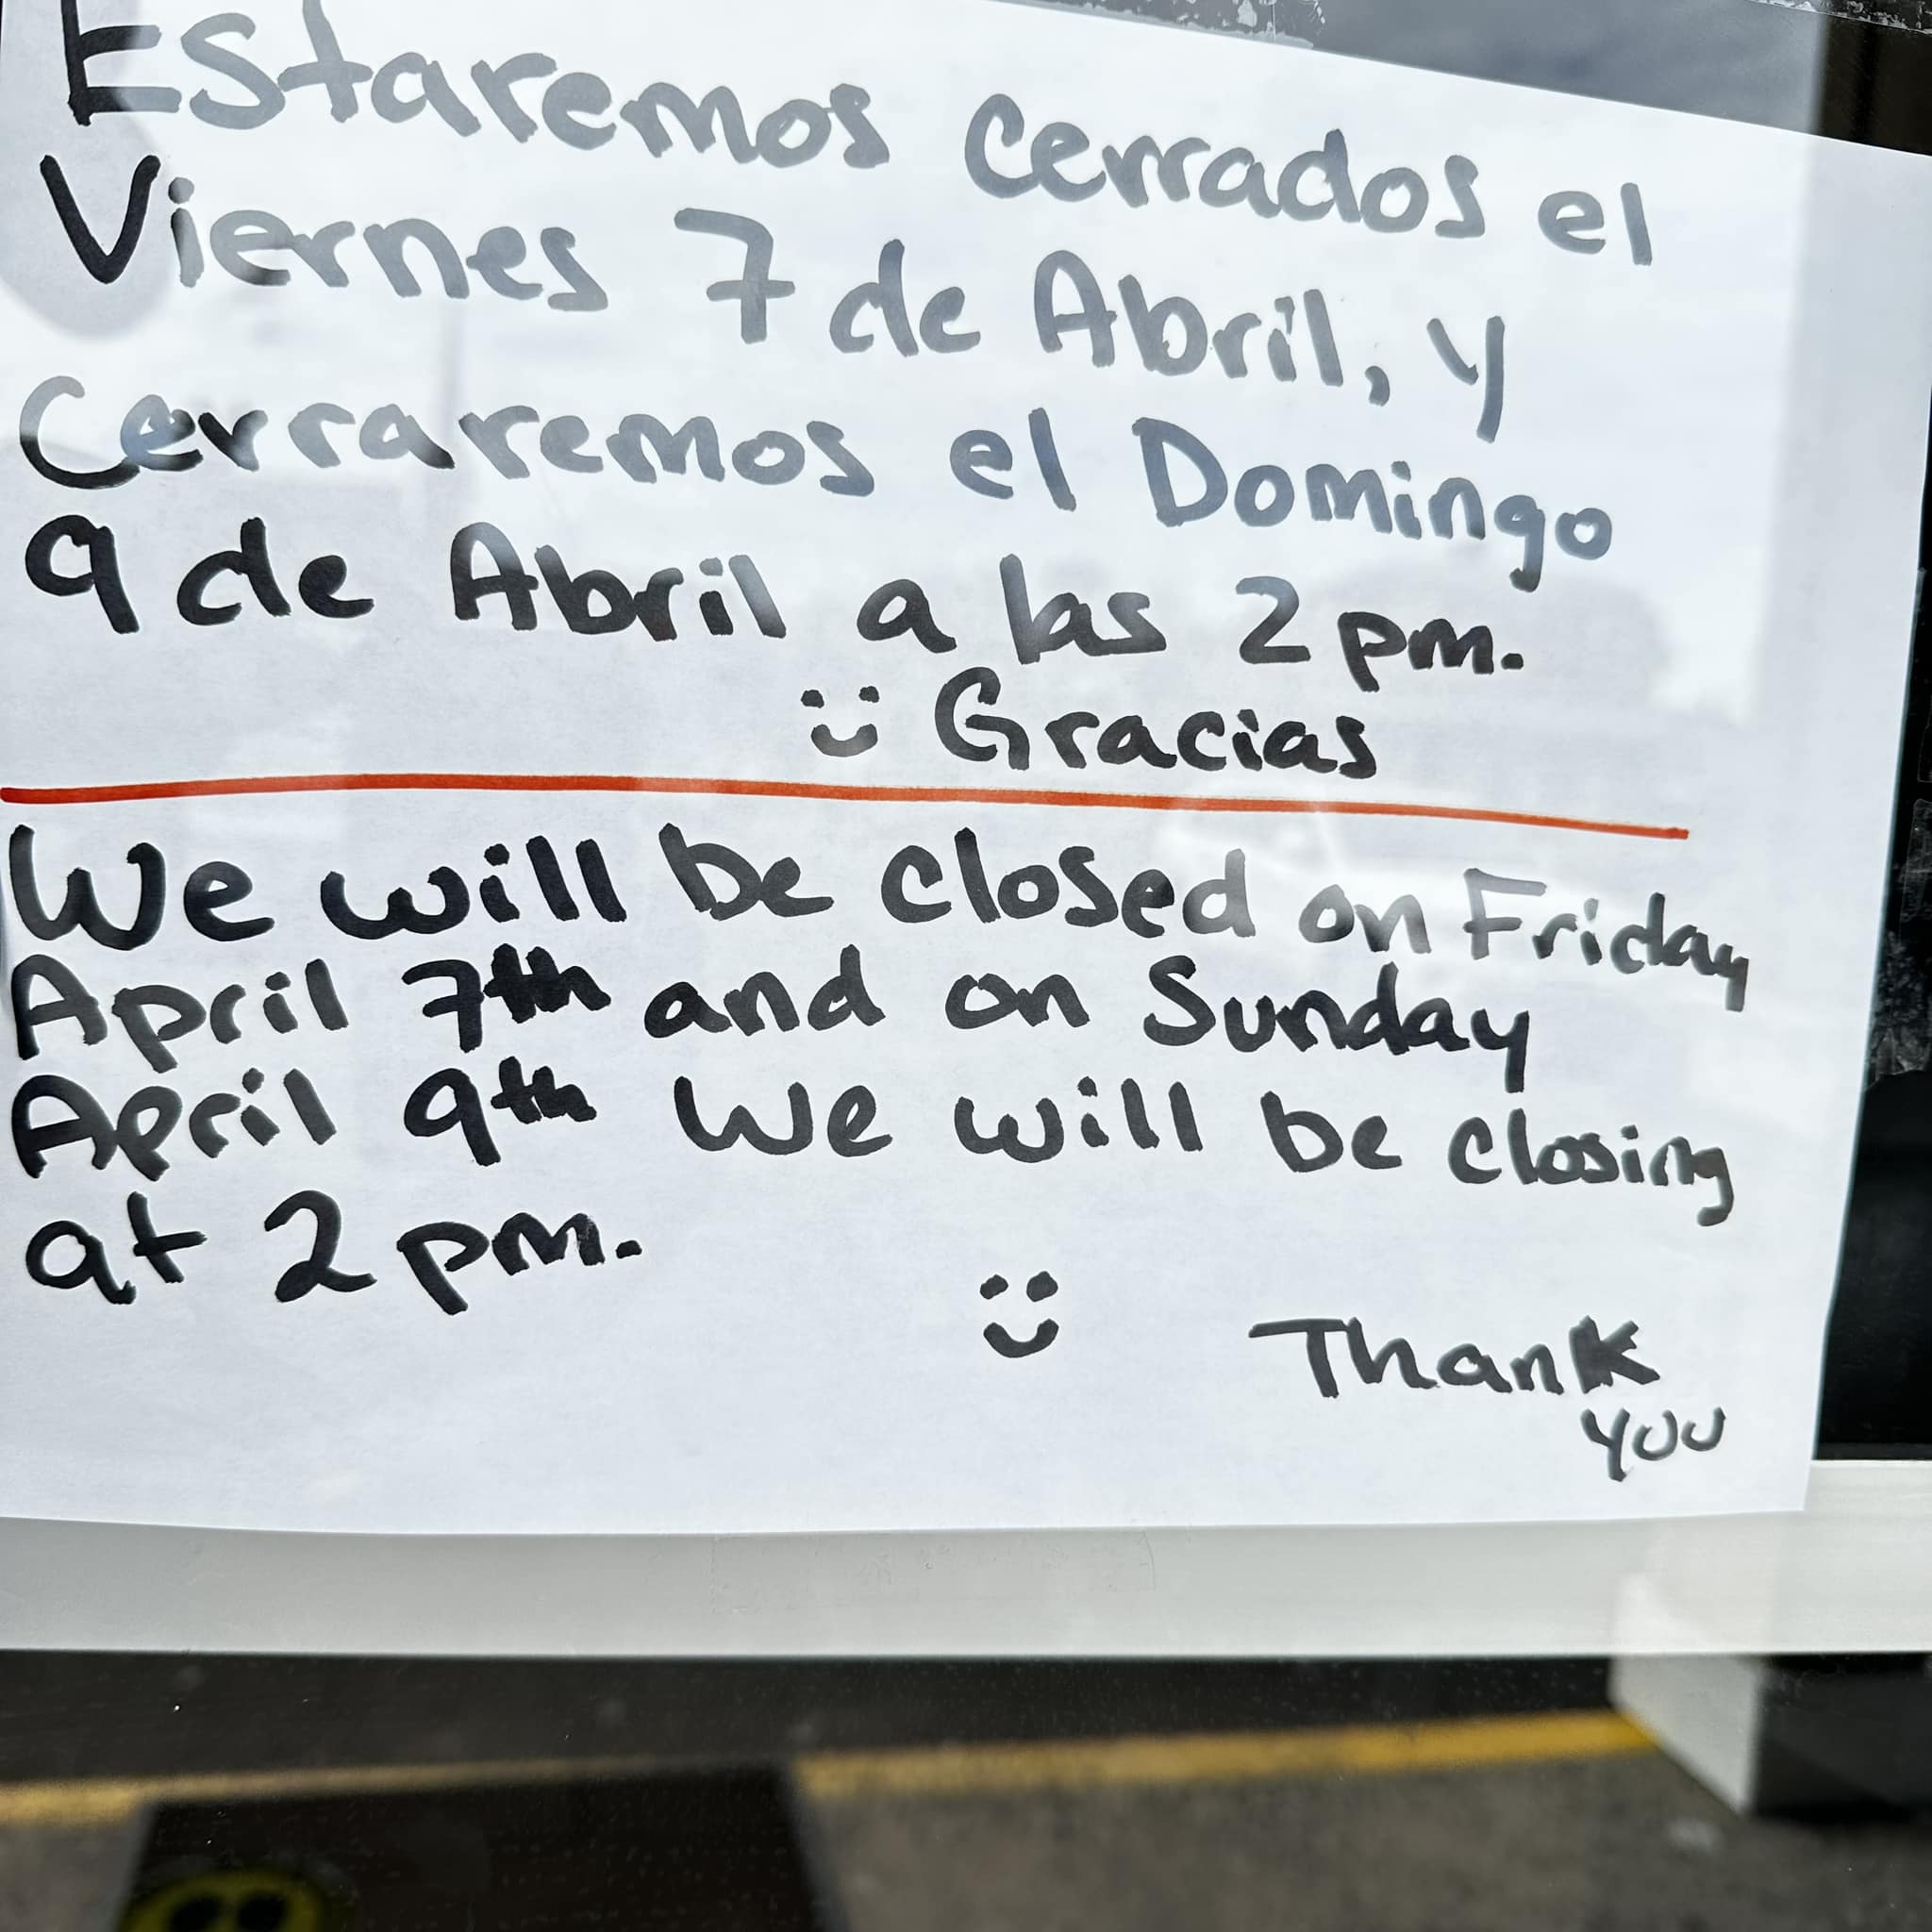 Estaremos cerrados el
Viernes 7 de Abril, y
Cerraremos el Domingo
9 de Abril a las 2 pm.
Gracias
We will be closed on Friday
April 7th and on Sunday
April 9th We will be closing
at 2 pm.
Thank
you